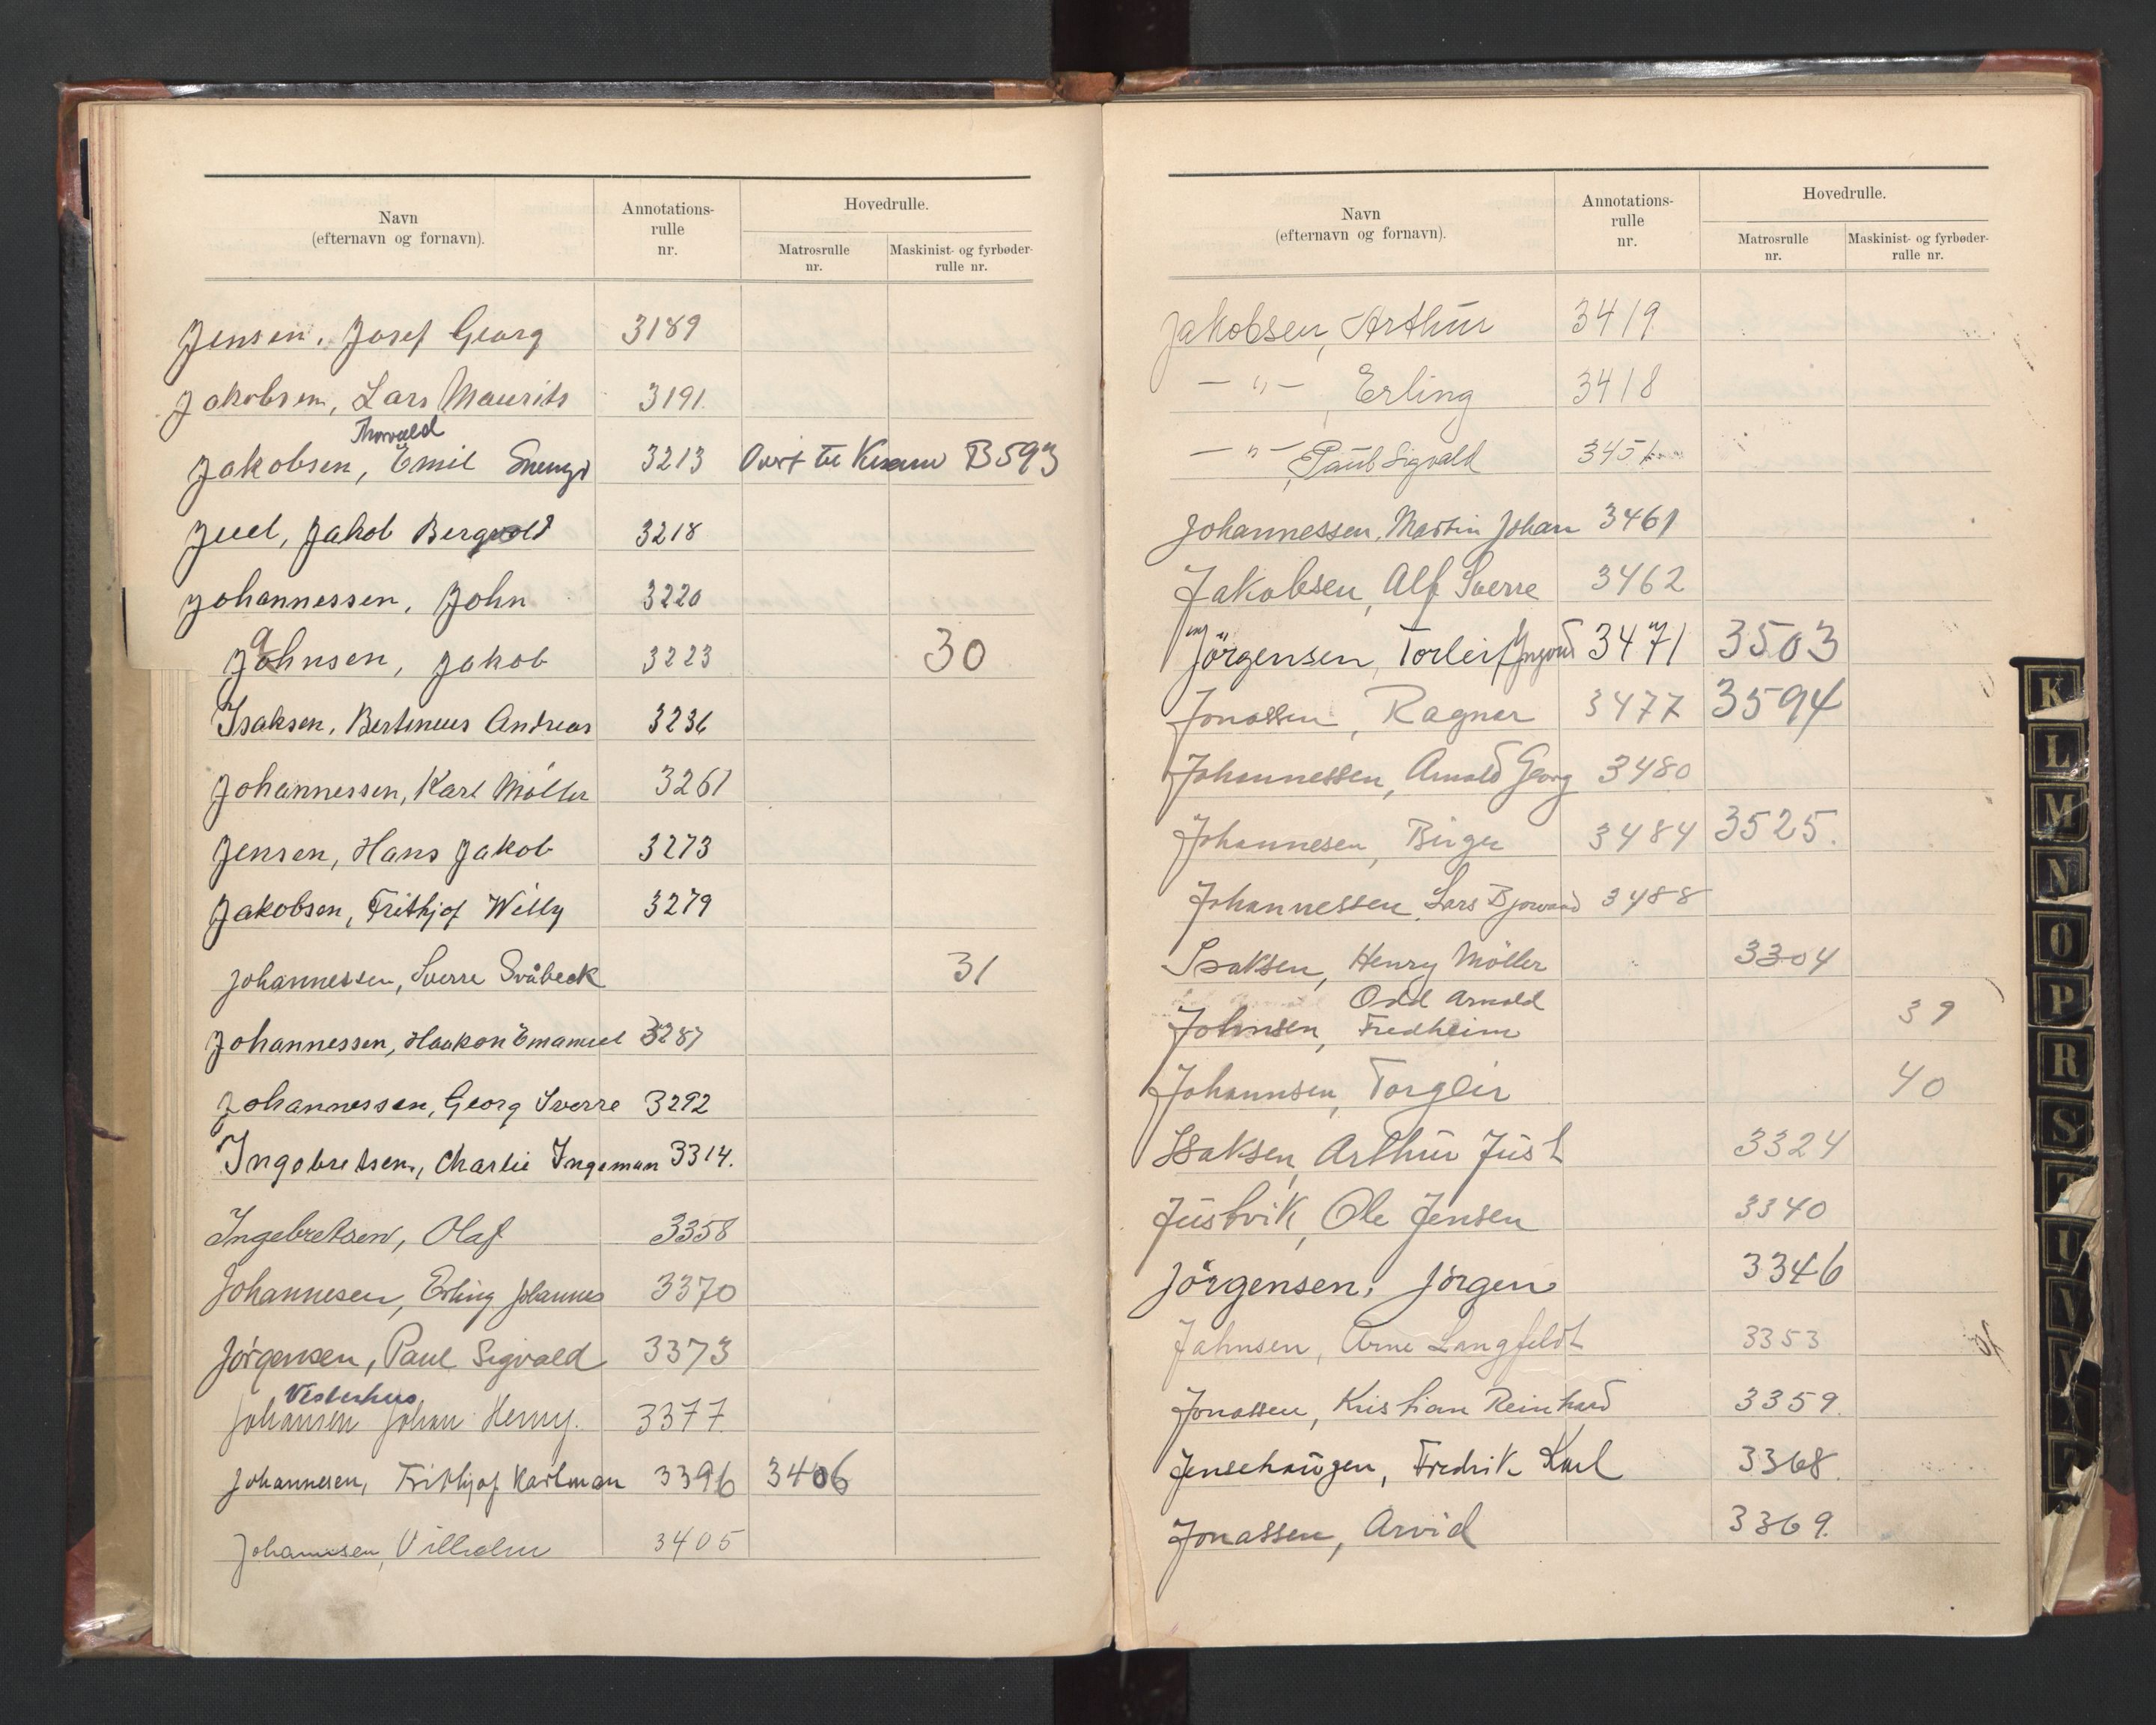 Navn
(efternavn og fornavn).
Annotations-
rulle
nr.
Hovedrulle.
Matrosrulle
nr.
Maskinist- og fyrbøder-
rulle nr.
Jensen, Josef Georg 3189
Jakobsen, Lars Maurits 3191.
Thorvald
Jakobsen, Emil 3213 Overf til B 593
Juel, Jakob Bergvold 3218
Johannessen, John 3220
Jahnsen, Jakob 3223 30
Isaksen, Bertineus Andreas 3236
Johannessen, Karl Møller 3261
Jensen, Hans Jakob 3273
Jakobsen, Frithjof Willy 3279
Johannessen, Sverre Svåbeck 31
Johannessen, Haakon Emanuel 3287
Johannessen, Georg Sverre 3292
Ingebretsen, Charlie Ingeman 3314.
Ingebretsen, Olaf 3358
Johannesen, Erling Johannes 3370
Jørgensen, Paul Sigvald 3373
Vesterhus
Johansen Johan Henry. 3377.
Johannesen, Frithjof Karlman 3396 3406
Johannesen, Vilhelm 3405
Navn
(efternavn og fornavn).
Annotations-
rulle
nr.
Hovedrulle.
Matrosrulle
nr.
Maskinist- og fyrbøder-
rulle nr.
Jakobsen, Arthur 3419
— " — , Erling 3418
— " — , Paul Sigvald 3451
Johannessen, Martin Johan 3461
Jakobsen, Alf Sverre 3462
Jörgensen, Torleif Ingvald 3471 3503
Jonassen, Ragnar 3477 3594
Johannessen, Arnold Georg 3480
Johannesen, Birger 3484 3525.
Johannessen, Lars Bjorvand 3488
Isaksen, Henry Möller 3304
Odd Arnold
Johnsen, Fredheim 39
Johannsen, Torgeir 40
Isaksen, Arthur Just 3324
Justvik, Ole Jensen 3340
Jörgensen, Jörgen 3346
Jahnsen, Arne Langfeldt 3353
Jonassen, Kristian Reinhard 3359.
Jensehaugen, Fredrik Karl 3368.
Jonassen, Arvid 3369.
K
L
M
N
O
P
R
S
T
U
V